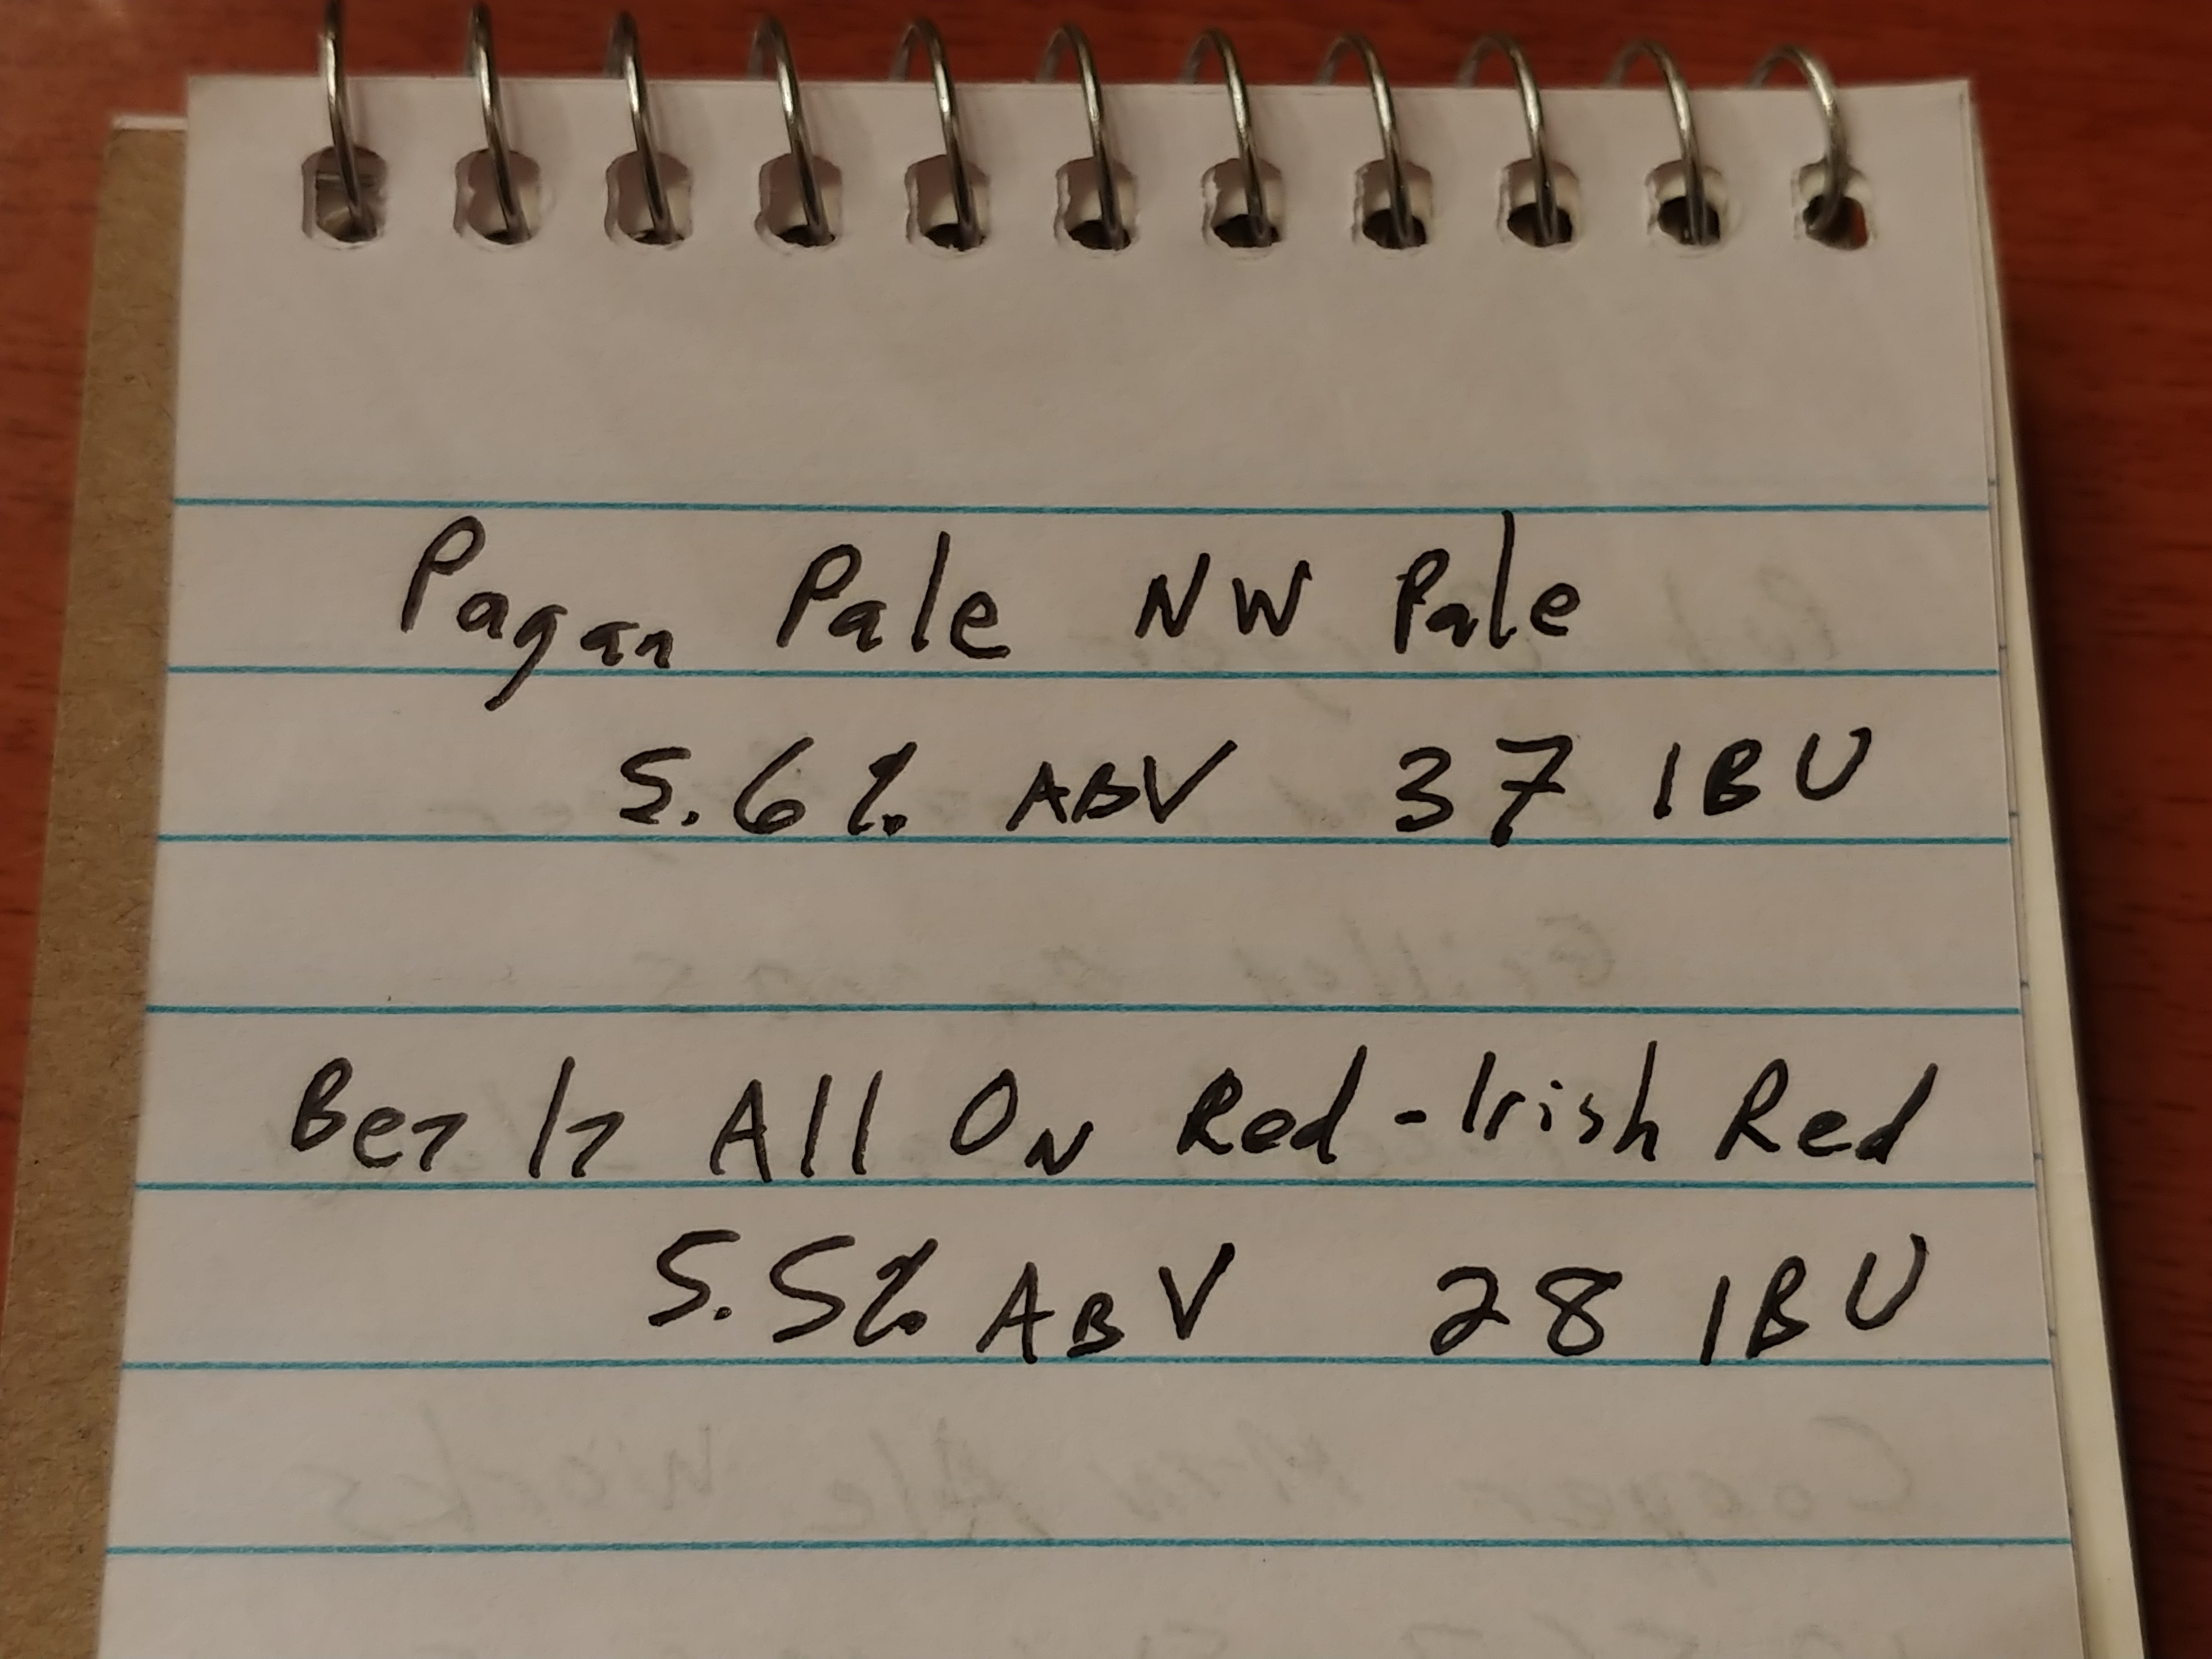 Pagan Pale NW Pale
5.6% ABV 37 IBU
Ben In All On Red - Irish Red
5.5% ABV 28 IBU